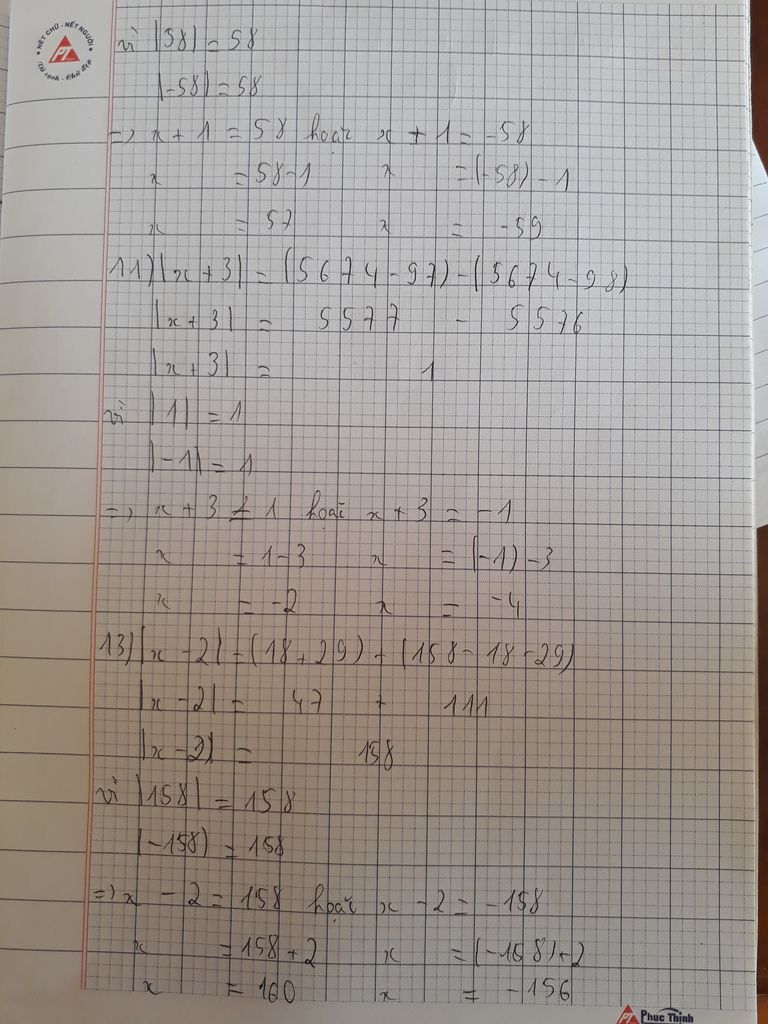 NÉT CHỮ - NẾT NGƯỜI
PT
Vở sạch - Chữ đẹp
vì |58| = 58
|-58| = 58
=> x + 1 = 58 hoặc x + 1 = -58
x = 58-1 x = (-58) - 1
x = 57 x = -59
11) |x + 3| = (5674 - 97) - (5674 - 98)
|x + 3| = 5577 - 5576
|x + 3| = 1
vì |1| = 1
|-1| = 1
=> x + 3 = 1 hoặc x + 3 = -1
x = 1-3 x = (-1) - 3
x = -2 x = -4
13) |x - 2| = (18 + 29) + (158 - 18 - 29)
|x - 2| = 47 + 111
|x - 2| = 158
vì |158| = 158
|-158| = 158
=> x - 2 = 158 hoặc x - 2 = -158
x = 158 + 2 x = (-158) + 2
x = 160 x = -156
PT Phúc Thịnh